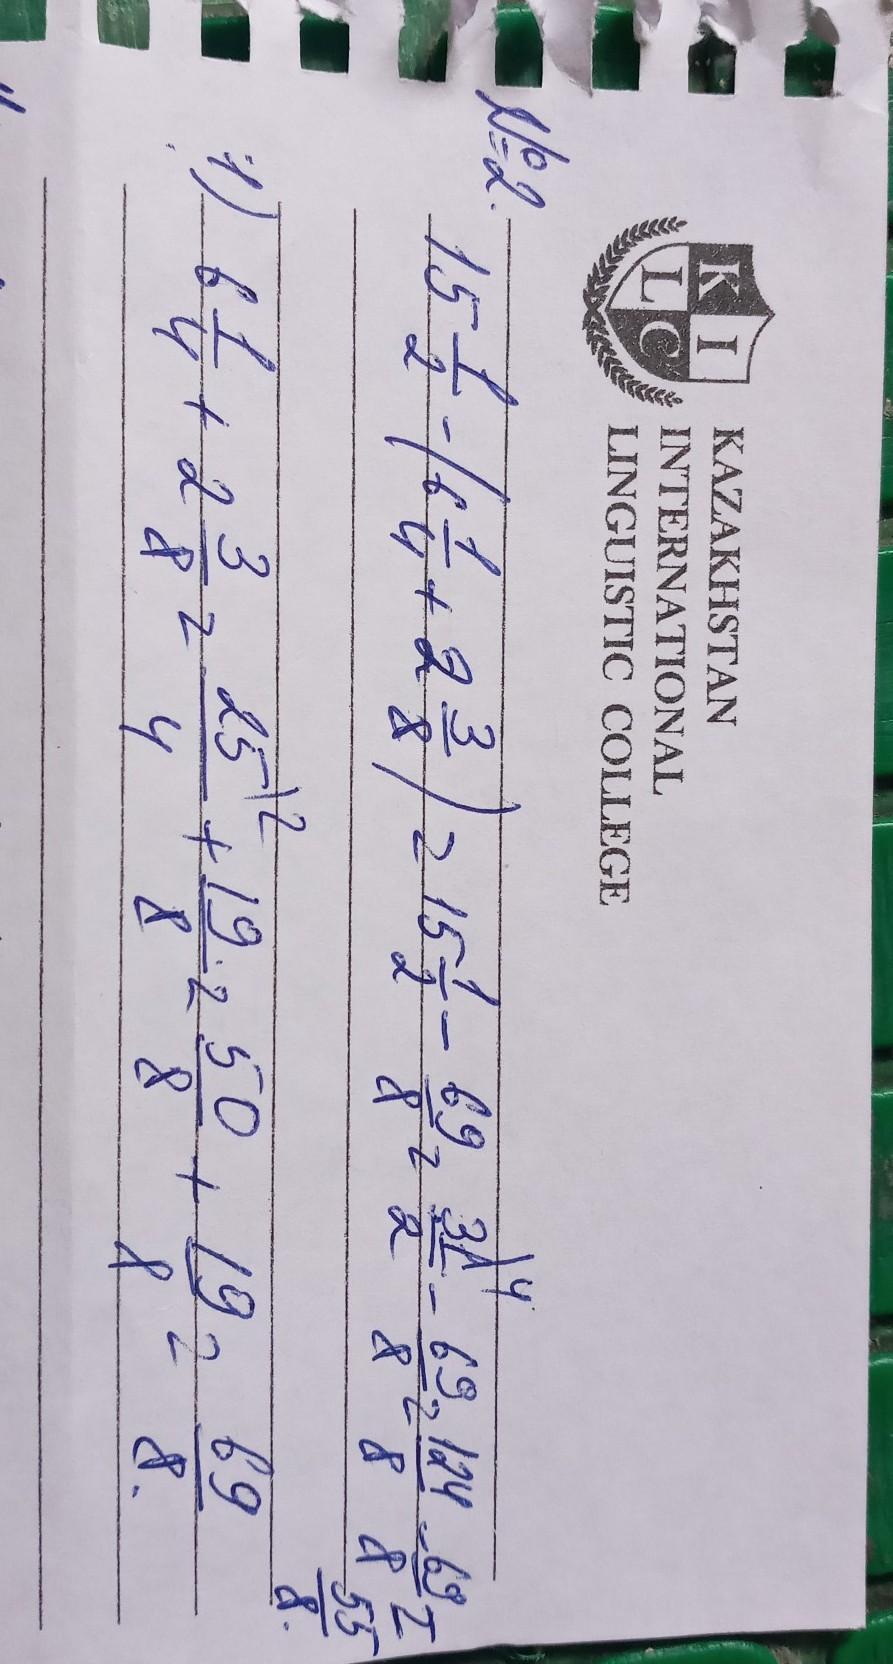 KAZAKHSTAN
INTERNATIONAL
LINGUISTIC COLLEGE
K I
L C
№2.
15 1/2 - (6 1/4 + 2 3/8) = 15 1/2 - 69/8 = 31/2 \4 - 69/8 = 124/8 - 69/8 =
55/8.
1) 6 1/4 + 2 3/8 = 25/4 \2 + 19/8 = 50/8 + 19/8 = 69/8.